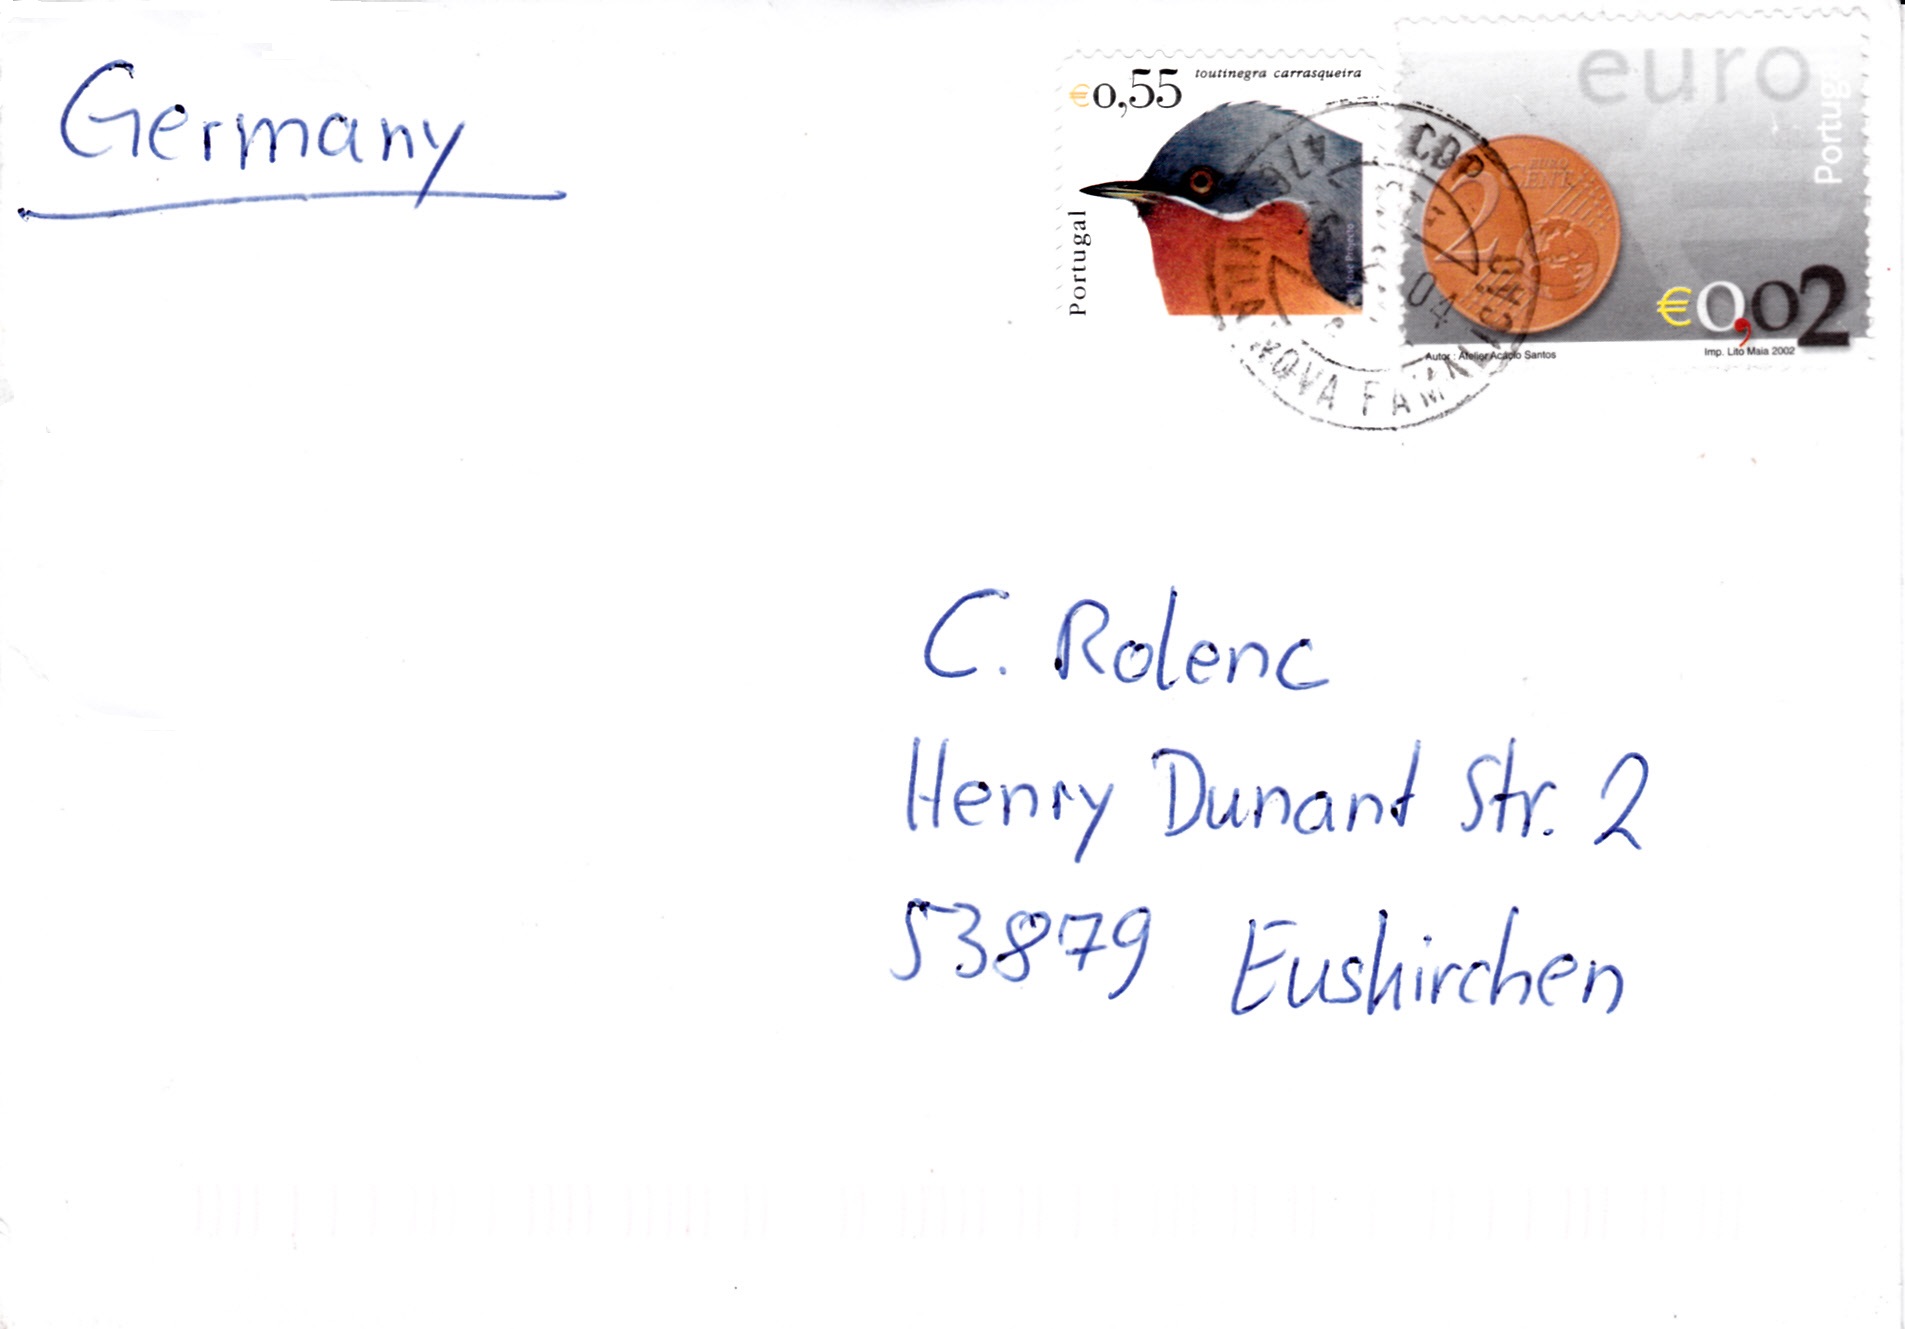 Germany
€0,55
toutinegra carrasqueira
Portugal
euro
Portugal
2
EURO
CENT
€0,02
Autor : Atelier Acácio Santos
Imp. Lito Maia 2002
CDP
476
04
VILA NOVA FAMALICÃO
C. Rolenc
Henry Dunant Str. 2
53879 Euskirchen